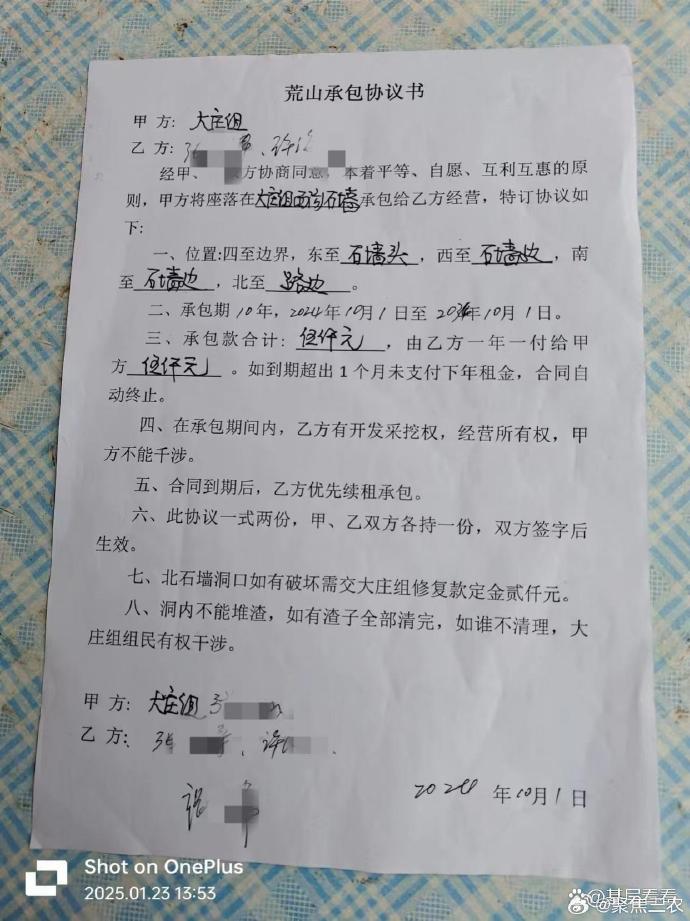 荒山承包协议书
甲 方: 大庄组
乙 方: 张 、许
经甲、 方协商同意, 本着平等、自愿、互利互惠的原
则, 甲方将座落在大庄组西沟石墙承包给乙方经营, 特订协议如
下:
一、位置:四至边界, 东至 石墙头 , 西至 石墙边 , 南
至 石墙边 , 北至 路边 。
二、承包期 10 年, 2024 年 10 月 1 日至 2034 年 10 月 1 日。
三、承包款合计: 伍仟元 , 由乙方一年一付给甲
方 伍仟元 。如到期超出 1 个月未支付下年租金, 合同自
动终止。
四、在承包期间内, 乙方有开发采挖权, 经营所有权, 甲
方不能千涉。
五、合同到期后, 乙方优先续租承包。
六、此协议一式两份, 甲、乙双方各持一份, 双方签字后
生效。
七、北石墙洞口如有破坏需交大庄组修复款定金贰仟元。
八、洞内不能堆渣, 如有渣子全部清完, 如谁不清理, 大
庄组组民有权干涉。
甲 方: 大庄组 张
乙 方: 张 、许
2024 年 10 月 1 日
Shot on OnePlus
2025.01.23 13:53
@基层看看
@聚焦三农